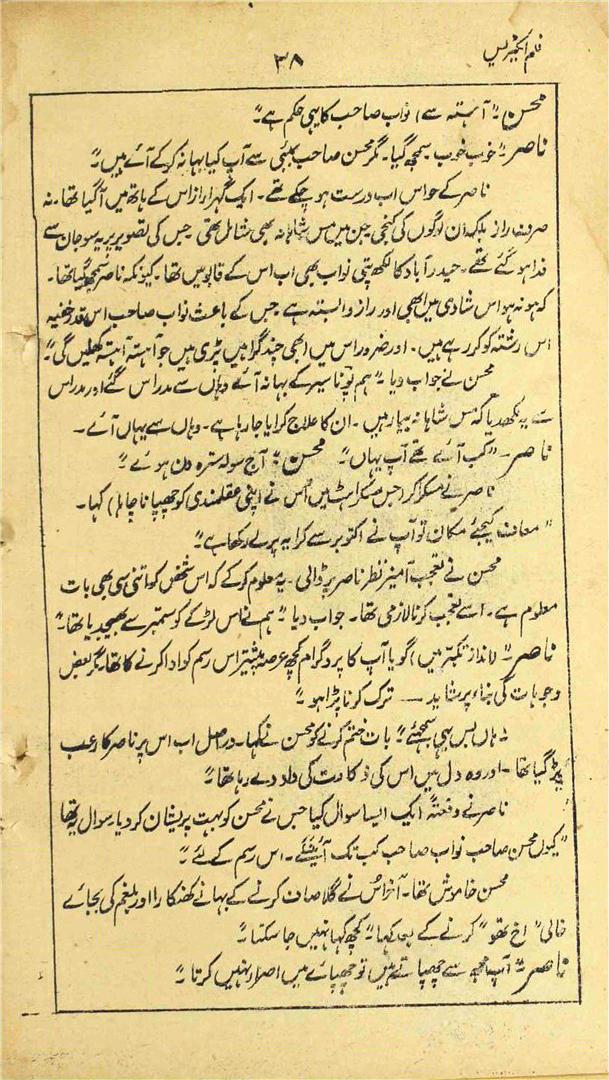 فلم ایکٹریس
۳۸
محسن (آہستہ سے) نواب صاحب کا یہی حکم ہے۔"
ناصر۔" خوب خوب سمجھ گیا۔ مگر محسن صاحب بمبئی سے آپ کیا بہانہ کر کے آئے ہیں۔"
ناصر کے حواس اب درست ہو چکے تھے۔ ایک گہرا راز اس کے ہاتھ میں آ گیا تھا۔ نہ
صرف راز بلکہ ان لوگوں کی کنجی جن میں مس شاہانہ بھی شامل تھی جس کی تصویر پر یہ سو جان سے
فدا ہو گئے تھے۔ حیدرآباد کا لکھ پتی نواب بھی اب اس کے قابو میں تھا۔ کیونکہ ناصر سمجھ گیا تھا۔
کہ ہو نہ ہو اس شادی میں ابھی اور راز وابستہ ہے جس کے باعث نواب صاحب اس قدر خفیہ
اس رشتہ کو کر رہے ہیں۔ اور ضرور اس میں ابھی چند گرہیں پڑی ہیں جو آہستہ آہستہ کھلیں گی۔"
محسن نے جواب دیا۔" ہم تو سیر کے بہانہ آئے وہاں سے مدراس گئے اور مدراس
سے یہ لکھدیا کہ مس شاہانہ بیمار ہیں۔ ان کا علاج کرایا جا رہا ہے۔ وہاں سے یہاں آئے۔
ناصر۔" کب آئے تھے آپ یہاں۔" محسن۔" آج سولہ سترہ دن ہوئے۔"
ناصر نے مسکرا کر (جس مسکراہٹ میں اُس نے اپنی عقلمندی کو چھپانا چاہا) کہا۔
"معاف کیجئے مکان تو آپ نے اکتوبر سے کرایہ پر لے رکھا ہے۔"
محسن نے تعجب آمیز نظر ناصر پر ڈالی۔ یہ معلوم کر کے کہ اس شخص کو اتنی سی بھی بات
معلوم ہے۔ اسے تعجب کرنا لازمی تھا۔ جواب دیا۔" ہم نے اس لڑکے کو ستمبر سے بھیجدیا تھا۔"
ناصر۔" (انداز تکبر میں) گویا آپ کا پروگرام کچھ عرصہ پیشتر اس رسم کو ادا کرنے کا تھا۔ مگر بعض
وجوہات کی بناء پر شاید —— ترک کرنا پڑا ہو۔"
"ہاں بس یہی سمجھئے۔" بات ختم کرنے کو محسن نے کہا۔ دراصل اب اس پر ناصر کا رعب
پڑ گیا تھا۔ اور وہ دل میں اس کی ذکاوت کی داد دے رہا تھا۔"
ناصر نے دفعتہً ایک ایسا سوال کیا جس نے محسن کو بہت پریشان کر دیا۔ سوال یہ تھا
"کیوں محسن صاحب نواب صاحب کب تک آئینگے۔ اس رسم کے لئے۔"
محسن خاموش تھا۔ آخر اُس نے گلا صاف کرنے کے بہانے کھنکارا اور بلغم کی بجائے
خالی "اخ تھو" کرنے کے بعد کہا۔" کچھ کہا نہیں جا سکتا۔"
ناصر۔" آپ مجھ سے چھپاتے ہیں تو چھپائیے میں اصرار نہیں کرتا۔"